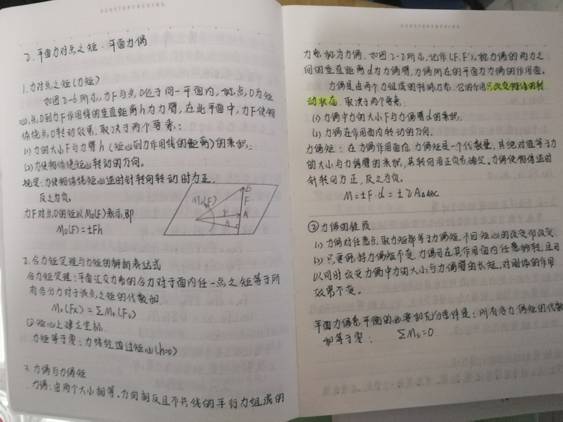 2. 平面力对点之矩·平面力偶
1. 力对点之矩(力矩)
如图2-6所示,力F与点O位于同一平面内,如点O为矩
心,点O到力作用线的垂直距离h为力臂,在此平面中,力F使物
体绕点O转动效果,取决于两个要素:
(1) 力的大小F与力臂h(矩心到力作用线的距离)的乘积.
(2) 力使物体绕矩心转动的方向.
规定:力使物体绕矩心逆时针转向转动时为正,
反之为负.
力F对点O的矩以M₀(F)表示,即
M₀(F)=±Fh
M₀(F)
F
h
A
2. 合力矩定理与力矩的解析表达式
合力矩定理:平面汇交力系的合力对于平面内任一点之矩等于所
有各分力对于该点之矩的代数和
M₀(FR)=ΣM₀(Fi)
力矩等于零:力线经过矩心(h=0)
3. 力偶与力偶矩
力偶:由两个大小相等、方向相反且不共线的平行力组成的
力系称为力偶,如图2-8所示,记作(F,F'),组力偶的两力之
间的垂直距离d为力偶臂,力偶所在的平面为力偶的作用面.
力偶是由两个力组成的特殊力系,它的作用只改变物体的转
动状态,取决于两个要素
(1) 力偶中力的大小F与力偶臂d的乘积.
(2) 力偶在作用面内转动的方向.
力偶矩:在力偶作用面内,力偶矩是一个代数量,其绝对值等于力
的大小与力偶臂的乘积,其转向用正负号确定,力偶使物体逆时
针转向为正,反之为负.
M=±F·d=±2A△ABC
② 力偶的性质
(1) 力偶对任意点取力矩都等于力偶矩,不因矩心的改变而改变.
(2) 只要保持力偶矩不变,力偶可在其作用面内任意移转,且可
以同时改变力偶中力的大小与力偶臂的长短,对刚体的作用
效果不变.
平面力偶系平衡的必要和充分条件是:所有各力偶矩的代数
和等于零: ΣMi=0